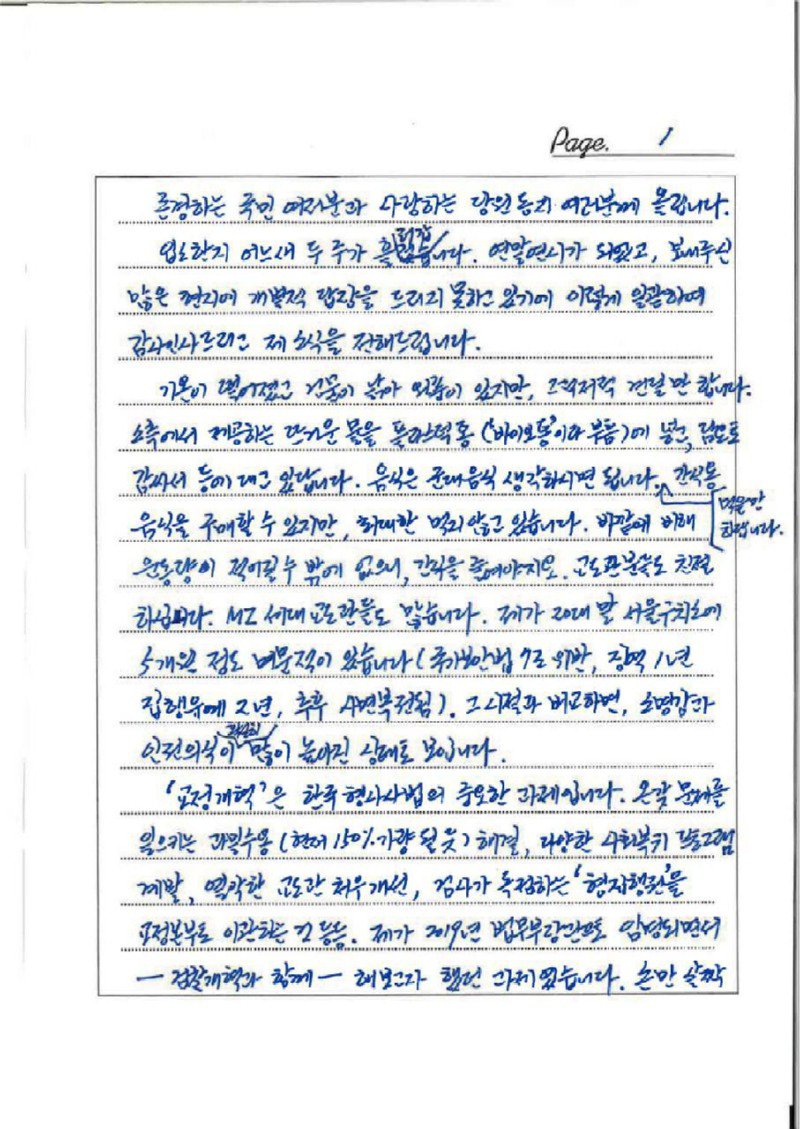 Page. 1
존경하는 국민 여러분과 사랑하는 당원 동지 여러분께 올립니다.
입소한지 어느새 두 주가 흘렀습니다. 연말연시가 되었고, 보내주신
많은 편지에 개별적 답장을 드리지 못하고 있기에 이렇게 일괄하여
감사인사드리고 제 소식을 전해드립니다.
기온이 떨어졌고 건물이 낡아 외풍이 있지만, 그럭저럭 견딜 만 합니다.
소측에서 제공하는 뜨거운 물을 플라스틱통('바이오통'이라 부름)에 넣고, 담요로
감싸서 등에 대고 있답니다. 음식은 군대음식 생각하시면 됩니다. 간식용
먹을만
하답니다.
음식을 구매할 수 있지만, 최대한 먹지 않고 있습니다. 바깥에 비해
운동량이 적어질 수 밖에 없으니, 간식을 줄여야지요. 교도관분들도 친절
하십니다. MZ 세대 교도관들도 많습니다. 제가 20대 말 서울구치소에
5개월 정도 머문적이 있습니다(국가보안법 7조 위반, 징역 1년
집행유예 2년, 추후 사면복권됨). 그 시절과 비교하면, 소명감과
인권의식이 많이 높아진 상태로 보입니다.
'교정개혁'은 한국 형사사법의 중요한 과제입니다. 온갖 문제를
일으키는 과밀수용(현재 150% 가량 될 듯) 해결, 다양한 사회복귀 프로그램
계발, 열악한 교도관 처우개선, 검사가 독점하는 '형집행권'을
교정본부로 이관하는 것 등등. 제가 2019년 법무부장관으로 임명되면서
— 검찰개혁과 함께 — 해보고자 했던 과제였습니다. 손만 살짝